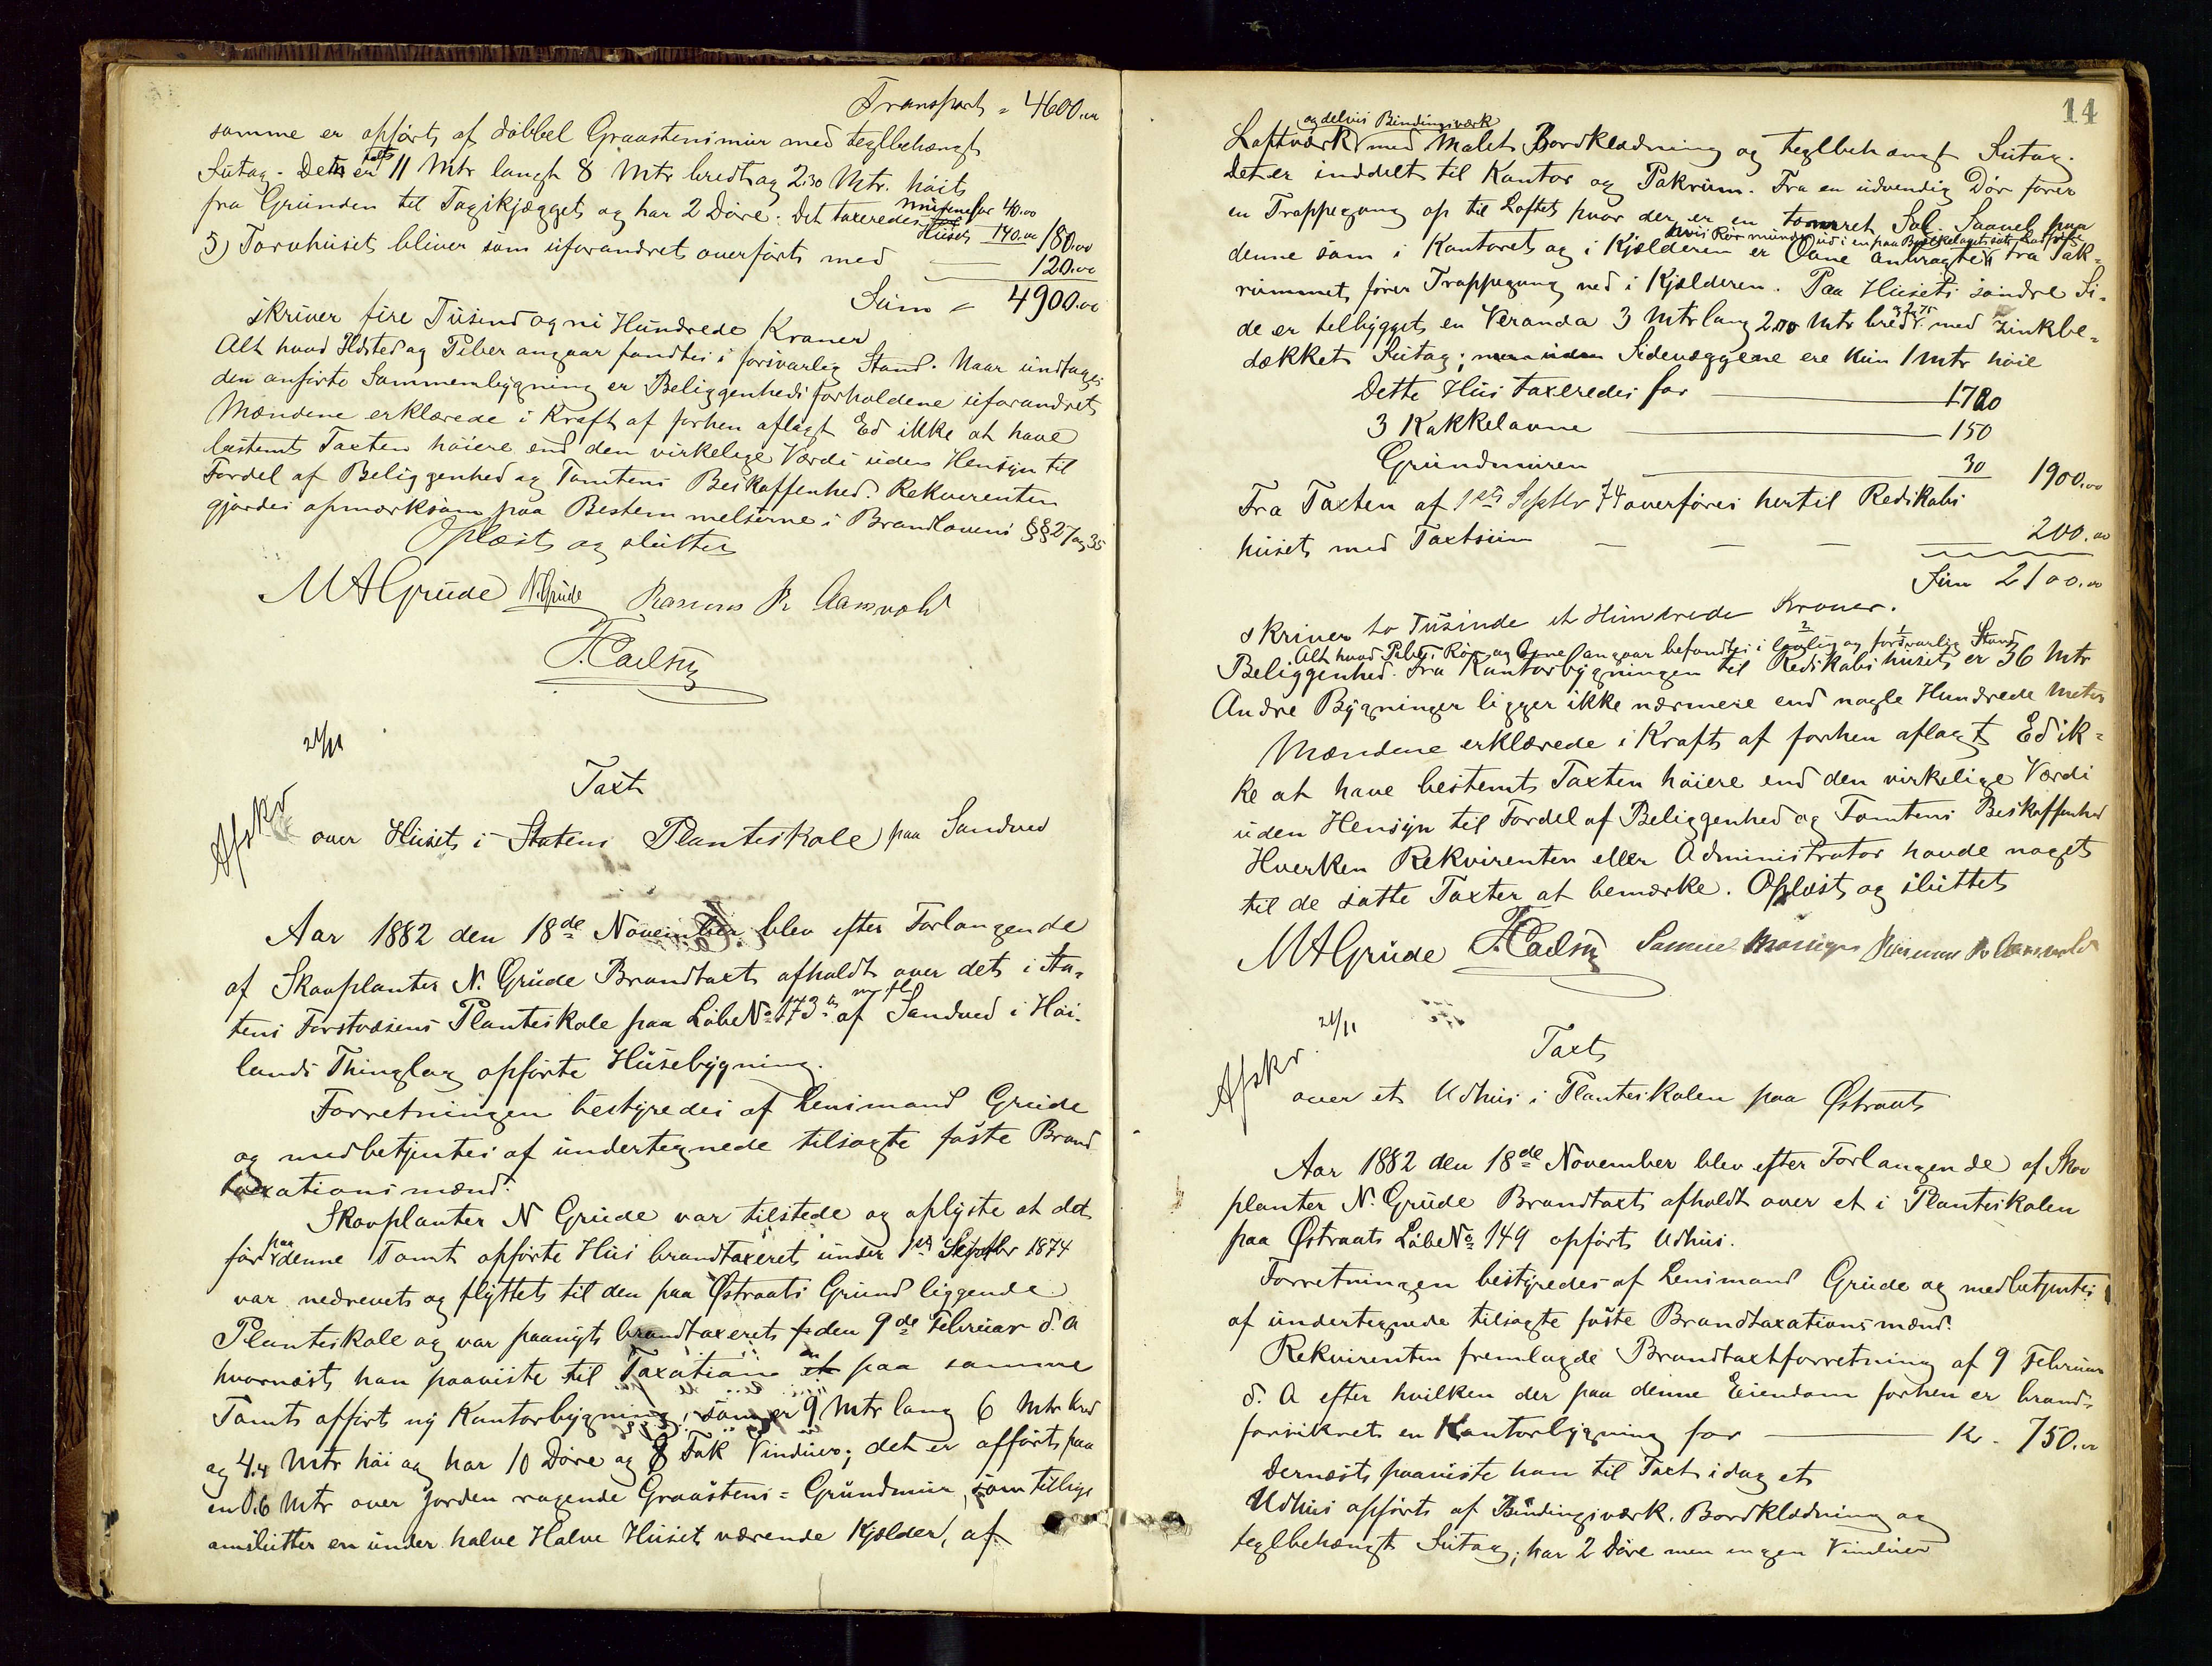 Transport = 4600.00
samme er opført af dobbel Graastensmur med teglbehængt
Sutag. Det er 11 Mtr langt 8 Mtr bredt og 2.30 Mtr. høit
fra Grunden til Tagskjægget og har 2 Døre. Det taxeredes Muren for 40.00
Huset 140.00 180.00
5) Tørvhuset bliver som uforandret overført med 120.00
Sum = 4900.00
skriver fire Tusind og ni Hundrede Kroner
Alt hvad Ildsted og Piber angaar fandtes i forsvarlig Stand. Naar undtages
den anførte Sammenbygning er Beliggenhedsforholdene uforandret
Mændene erklærede i Kraft af forhen aflagt Ed ikke at have
bestemt Taxten høiere end den virkelige Værdi uden Hensyn til
Fordel af Beliggenhed og Tomtens Beskaffenhed. Rekvirenten
gjordes opmærksom paa Bestemmelserne i Brandlovens §§ 27 og 35
Oplæst og sluttet
M A Grude N. Grude Rasmus R Aarsvold
T. Carlsen
21/11
Afskr
Taxt
over Huset i Statens Planteskole paa Sandved
Aar 1882 den 18de November blev efter Forlangende
af Skovplanter N. Grude Brandtaxt afholdt over det i Sta-
tens Forstvæsens Planteskole paa Løbe No 173 a m fl af Sandved i Høi-
lands Thinglag opførte Husebygning.
Forretningen bestyredes af Lensmand Grude
og medbetjentes af undertegnede tilsagte faste Brand
taxationsmænd.
Skovplanter N Grude var tilstede og oplyste at det
før paa denne Tomt opførte Hus brandtaxeret under 1ste Septbr 1874
var nedrevet og flyttet til den paa Østraats Grund liggende
Planteskole og var paanyt brandtaxeret den 9de Februar d. A
hvornæst han paaviste til Taxation en paa samme
Tomt opført ny Kontorbygning, som er 9 Mtr lang 6 Mtr bred
og 4.4 Mtr høi og har 10 Døre og 8 Fak Vinduer; det er opført paa
en 0.6 Mtr over Jorden ragende Graastens = Grundmur, som tillige
omslutter en under halve Halve Huset værende Kjælder, af
14
og delvis Bindingsværk
Loftværk med Malet Bordklædning og teglbehængt Sutag.
Det er inddelt til Kontor og Pakrum. Fra en udvendig Dør fører
en Trappegang op til Loftet hvor der er en tømret Sal. Saavel paa
hvis Rør munder ud i en paa Bjelkelaget sat
denne som i Kontoret og i Kjælderen er Ovne anbragte. Fra Pak-
rummet fører Trappegang ned i Kjælderen. Paa Husets søndre Si-
de er tilbygget en Veranda 3 Mtr lang 2.00 Mtr bred med Zinkbe-
dækket Sutag; Sidevæggene ere kun 1 Mtr høie
Dette Hus taxeredes for 1720
3 Kakkelovne 150
Grundmuren 30 1900.00
Fra Taxten af 1ste Septbr 74 overføres hertil Redskabs
huset med Taxtsum 200.00
Sum 2100.00
skriver to Tusinde et Hundrede Kroner.
Alt hvad Piber, Rør og Ovne angaar befandtes i lovlig og forsvarlig Stand
Beliggenhed. Fra Kontorbygningen til Redskabshuset er 36 Mtr
Andre Bygninger ligger ikke nærmere end nogle Hundrede Meter
Mændene erklærede i Kraft af forhen aflagt Ed ik-
ke at have bestemt Taxten høiere end den virkelige Værdi
uden Hensyn til Fordel af Beliggenhed og Tomtens Beskaffenhed
Hverken Rekvirenten eller Administrator havde noget
til de satte Taxter at bemærke. Oplæst og sluttet
M A Grude T. Carlsen Samuel Rasmus R Aarsvold
21/11
Afskr.
Taxt
over et Udhus i Planteskolen paa Østraat
Aar 1882 den 18de November blev efter Forlangende af Skov
planter N. Grude Brandtaxt afholdt over et i Planteskolen
paa Østraat Løbe No 149 opført Udhus.
Forretningen bestyredes af Lensmand Grude og medbetjentes
af undertegnede tilsagte faste Brandtaxationsmænd.
Rekvirenten fremlagde Brandtaxtforretning af 9 Februar
d. A efter hvilken der paa denne Eiendom forhen er brand-
forsikret en Kontorbygning for Kr. 750.00
Dernæst paaviste han til Taxt idag et
Udhus opført af Bindingsværk. Bordklædning og
teglbehængt Sutag; har 2 Døre men ingen Vinduer